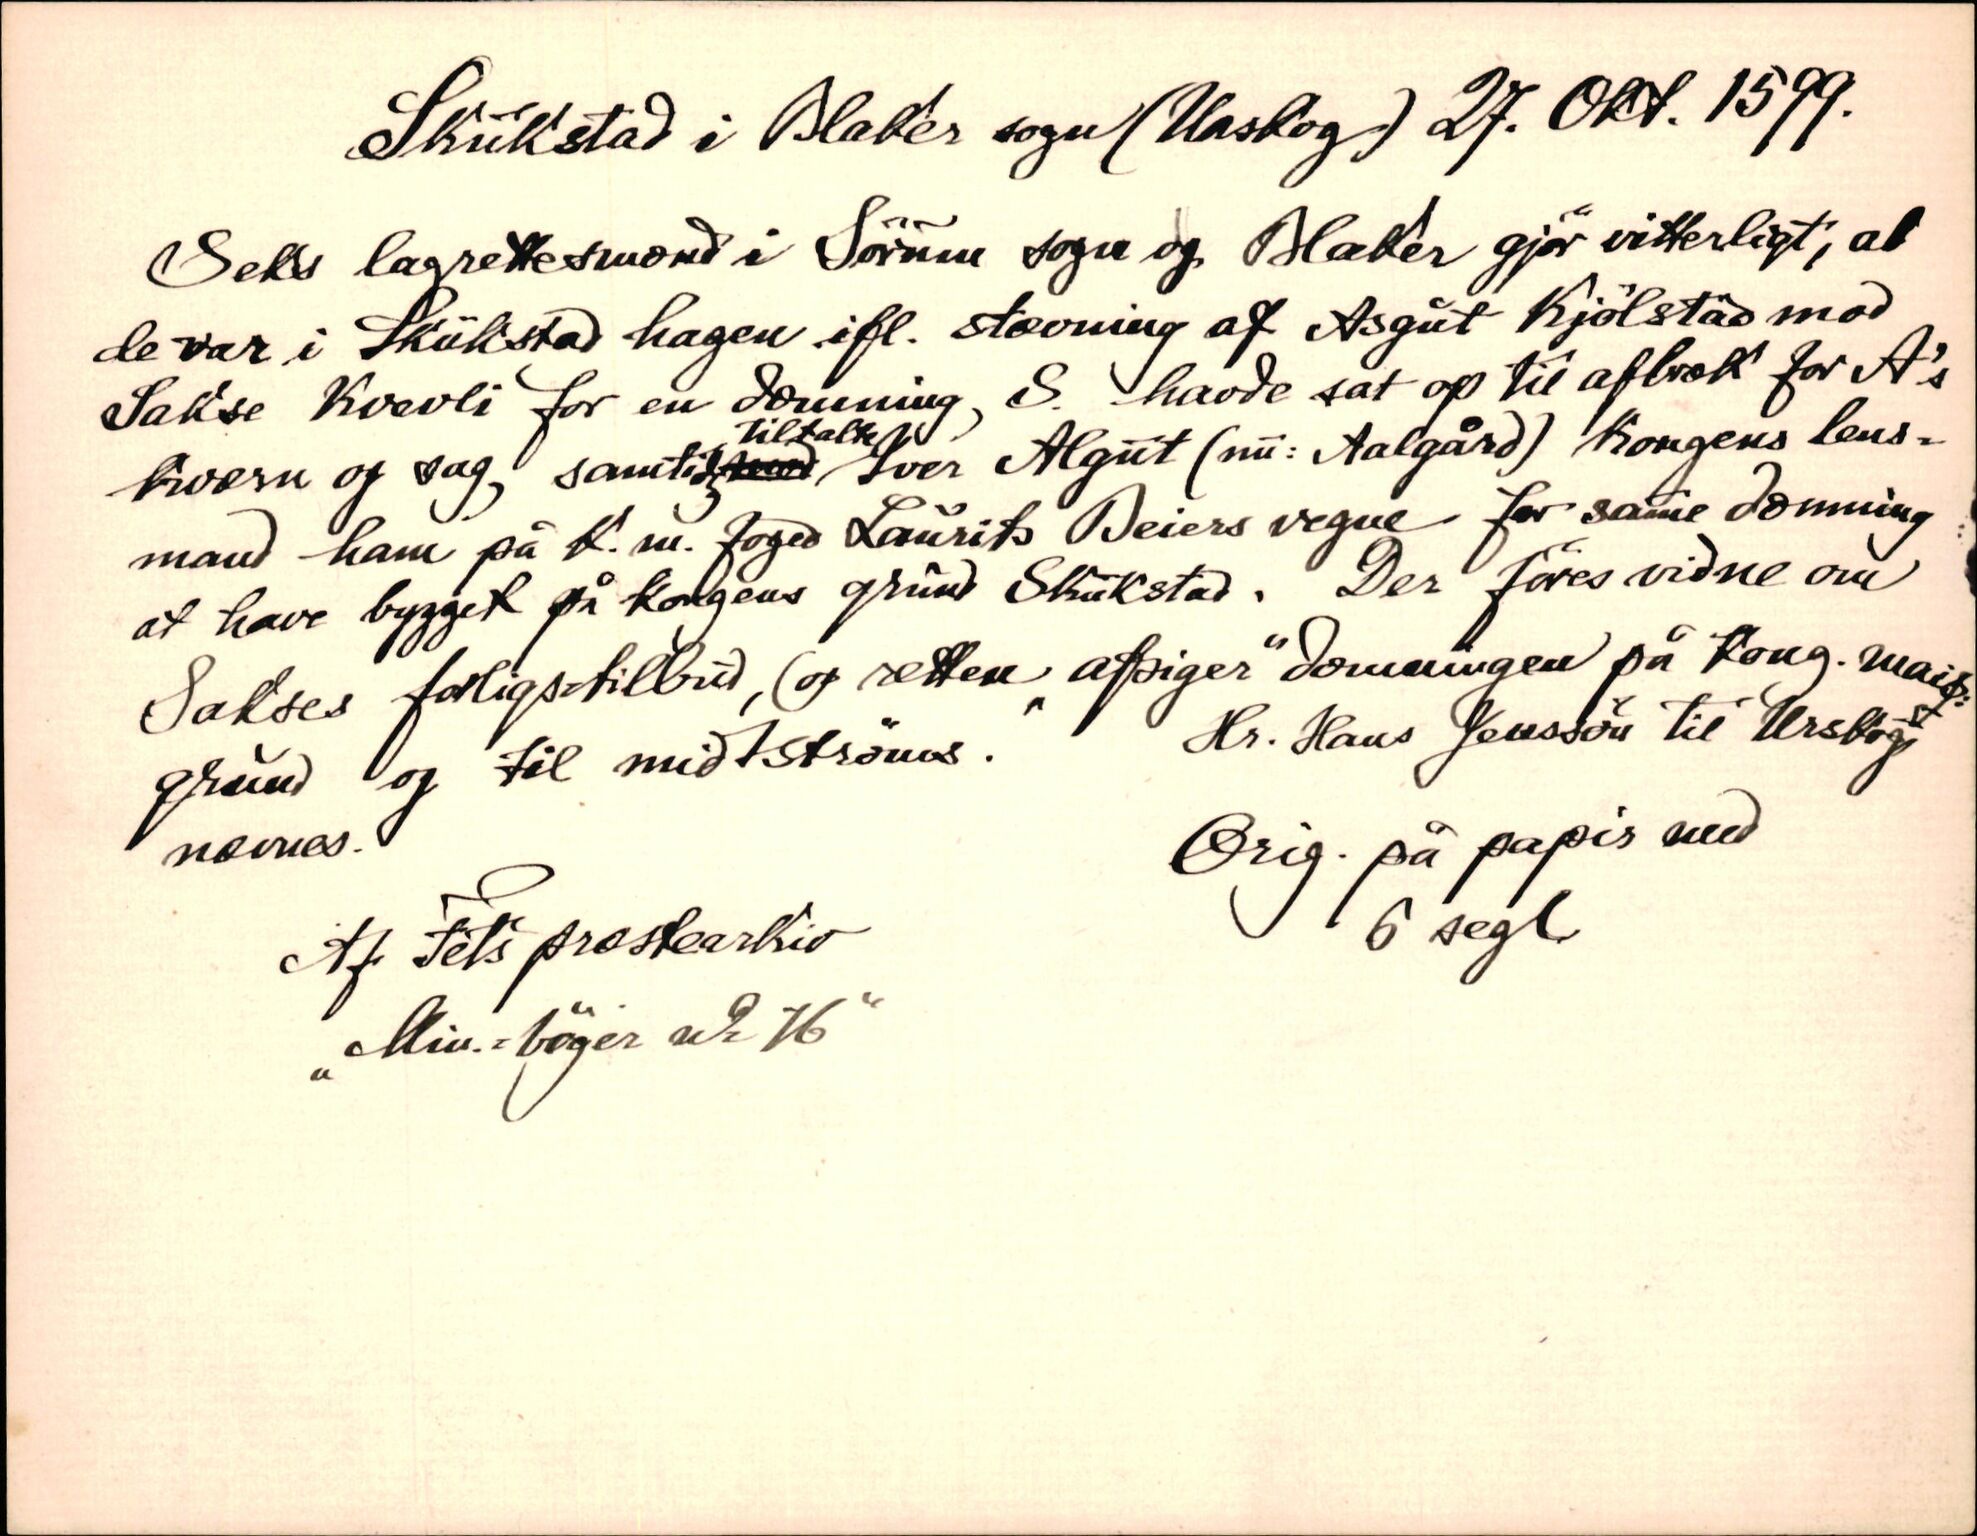 Skukstad i Blaker sogn (Urskog) 27. Okt. 1599.
Seks lagrettesmænd i Sörum sogn og Blaker gjör vitterligt, at
de var i Skukstad hagen ifl. stævning af Asgut Kjölstad mod
Sakse Kvevli for en dæmning, S. havde sat op til afbræk for A's
kværn og sag, samtidg tiltalte Iver Algut (nu: Aalgård) kongens lens-
mand ham på k. m. foged Laurits Beiers vegne for samme dæmning
at have bygget på kongens grund Skukstad. Der föres vidne om
Sakses forligs-tilbud, (og retten „afsiger“ dæmningen på kong. maigs:
grund og til midtströms. Hr. Hans Jenssön til Urskog
nævnes.
Orig. på papir med
6 segl
Af Fets præstearkiv
„Min.-böger nr 16“